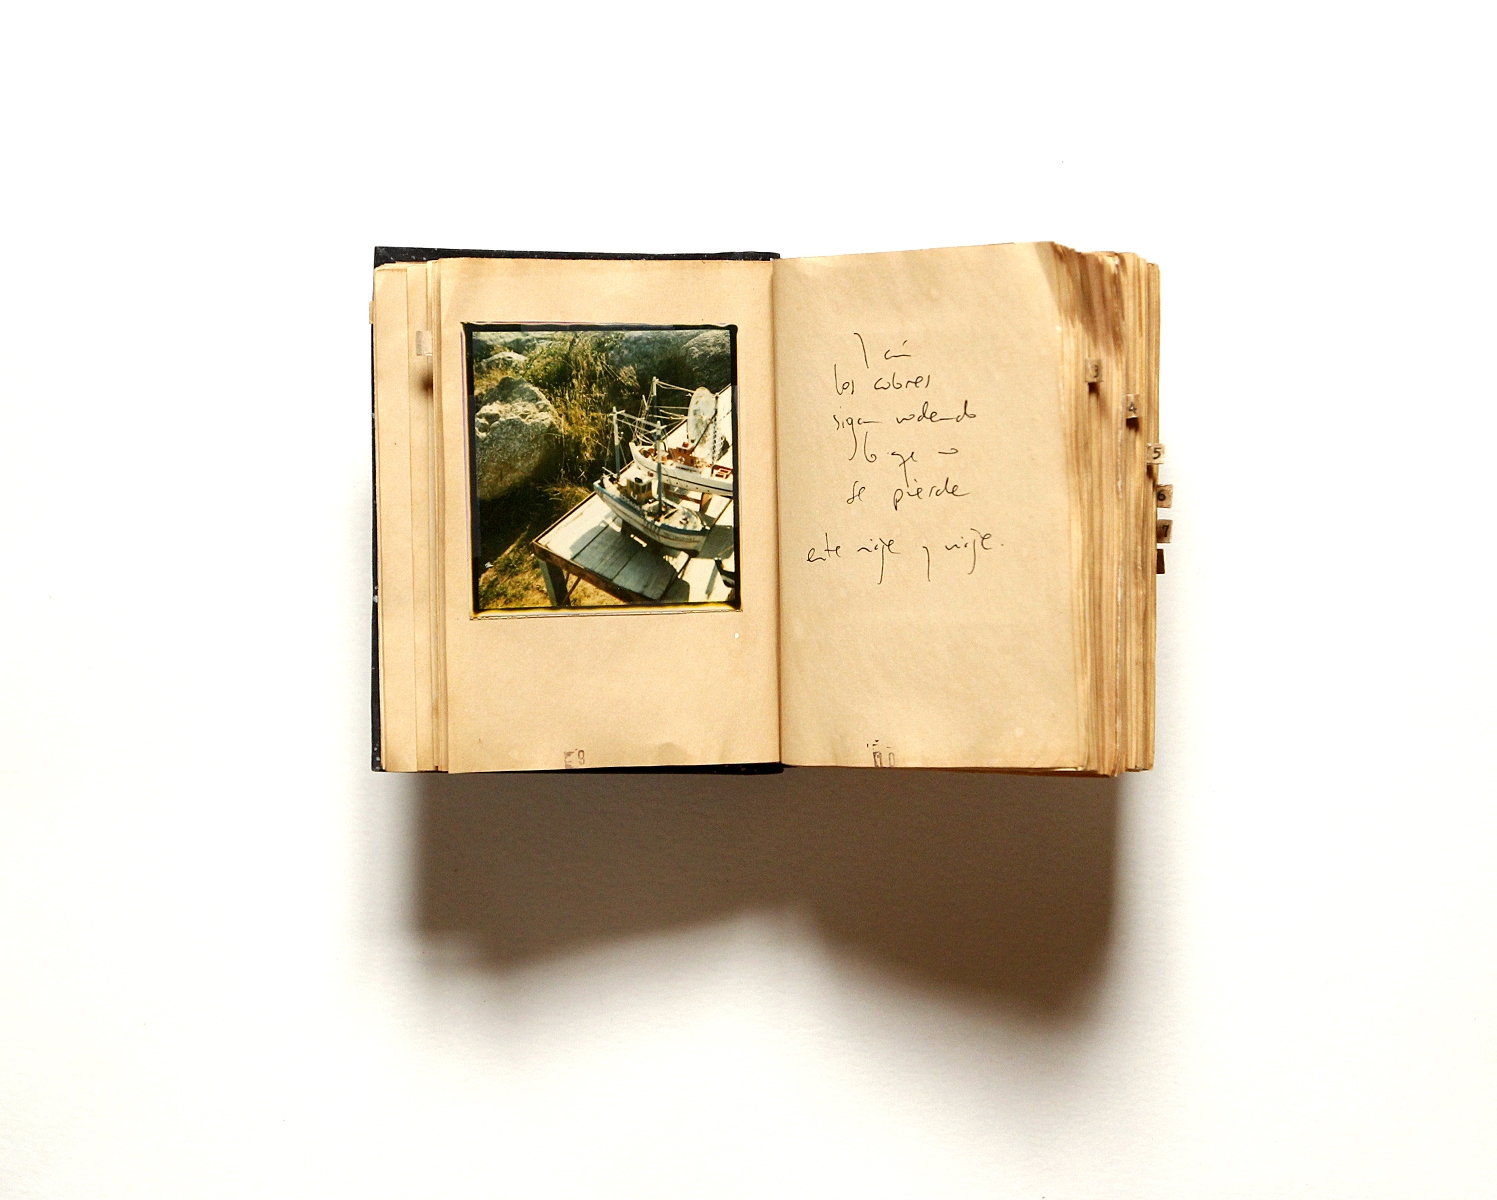 y así
los cobres
sigan rodando
lo que no
se pierde
entre viaje y viaje.
3
4
5
6
7